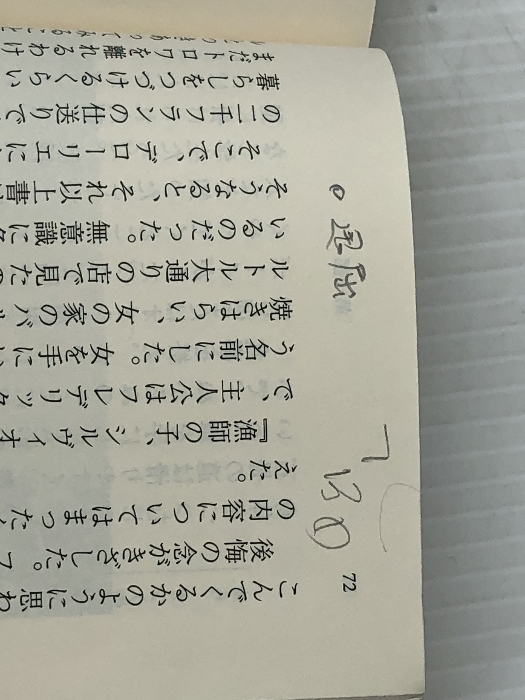 72
こんでくるかのように思わ
後悔の念がきざした。フ
の内容についてはまったく
えた。
『漁師の子、シルヴィオ
で、主人公はフレデリック
う名前にした。女を手にい
焼きはらい、女の家のバル
ルトル大通りの店で見たの
いるのだった。無意識にタ
そうなると、それ以上書
そこで、デローリエに
の二千フランの仕送りで
暮らしをつづけるくらい
まだトロワを離れるわけ
退屈